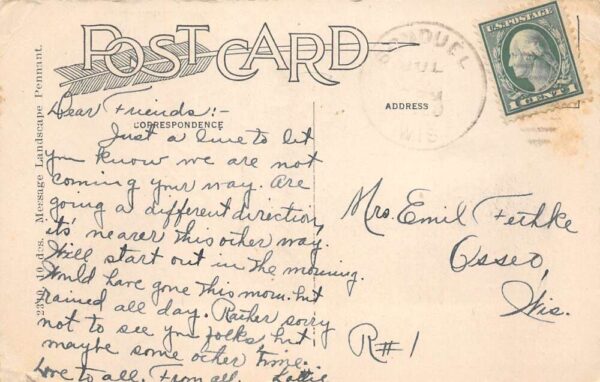 POST CARD
BONDUEL
JUL
WIS
U.S. POSTAGE
1 CENT 1
CORRESPONDENCE
ADDRESS
2310—10 des. Message Landscape Pennant.
Dear Friends:-
Just a line to let
you know we are not
coming your way. Are
going a different direction,
it's nearer this other way.
Will start out in the morning.
Would have gone this morn. but
rained all day. Rather sorry
not to see you folks but
maybe some other time.
Love to all. From all. Lottie
Mrs. Emil Fethke
Osseo,
Wis.
R#1